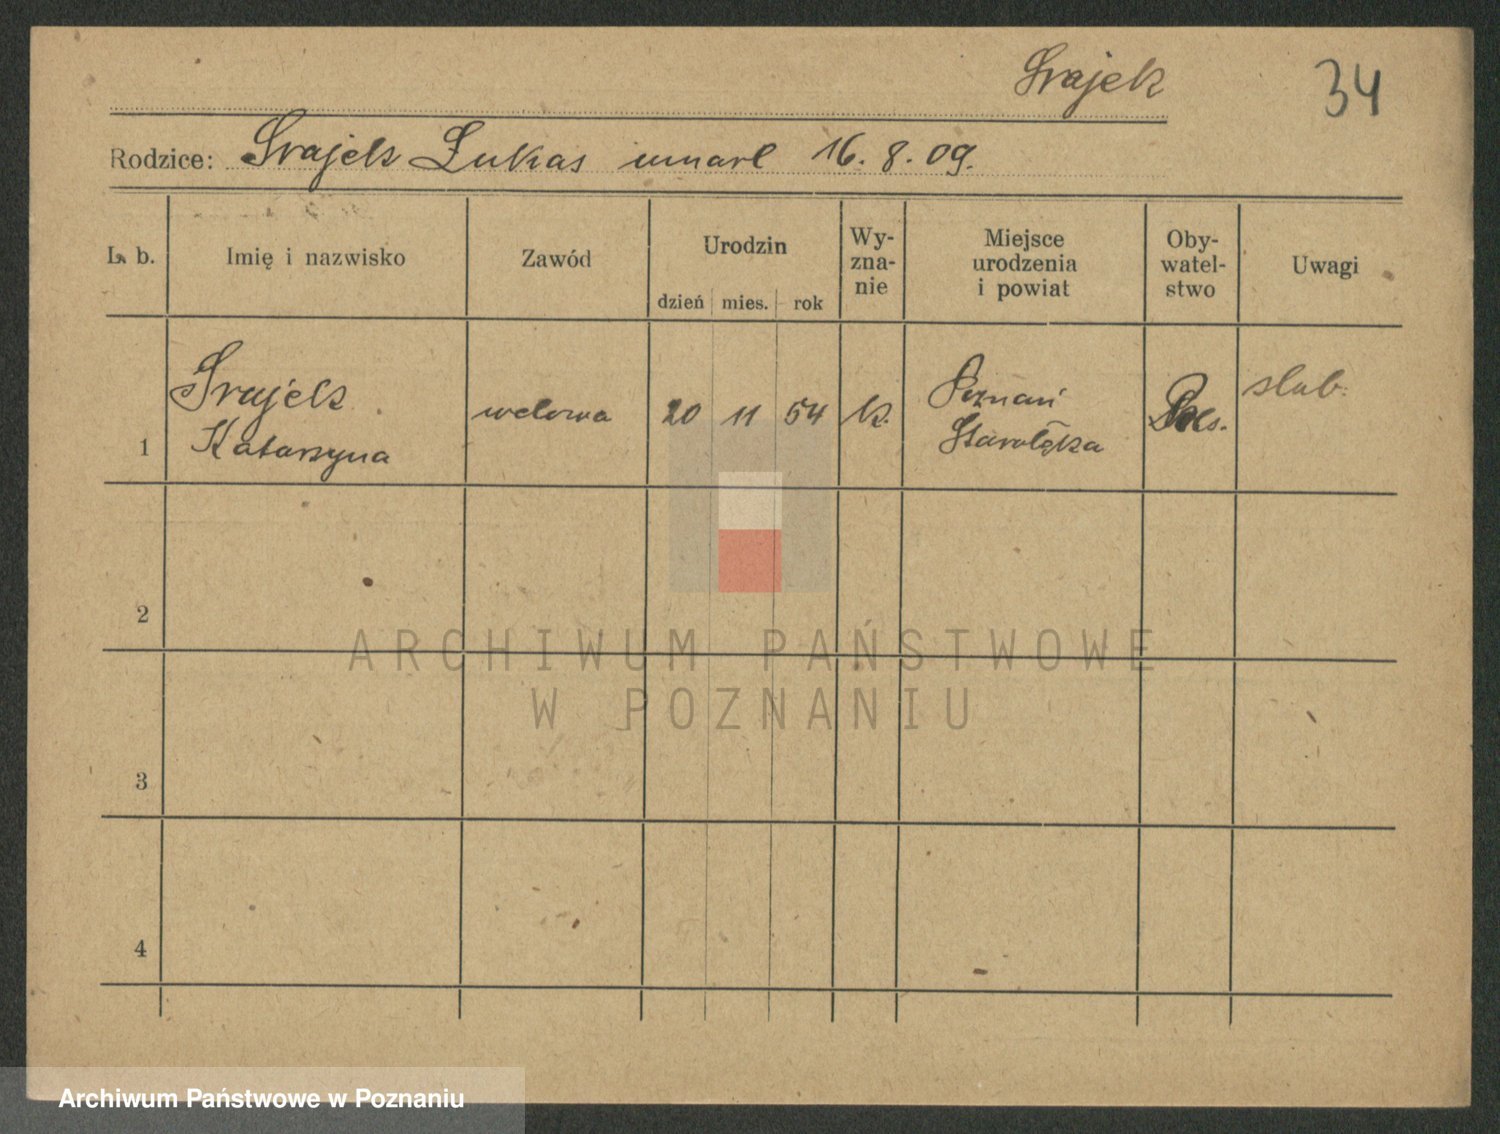 Srajek
34
Rodzice: Srajek Łukas umarł 16. 8. 09.
L. b.
Imię i nazwisko
Zawód
Urodzin
dzień mies. rok
Wy-
zna-
nie
Miejsce
urodzenia
i powiat
Oby-
watel-
stwo
Uwagi
1
Srajek
Katarzyna
wdowa
20 11 54
k.
Poznań
Starołęka
slub.
2
3
4
ARCHIWUM PAŃSTWOWE
W POZNANIU
Archiwum Państwowe w Poznaniu